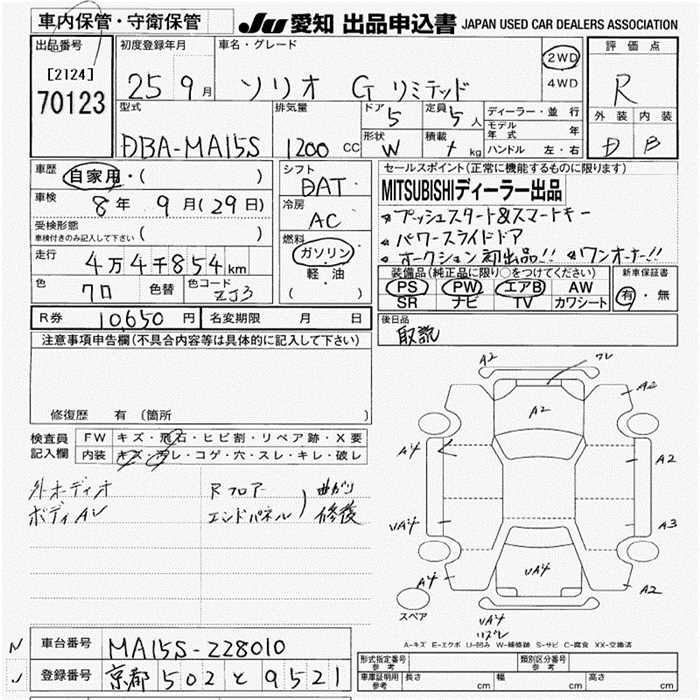 車内保管・守衛保管
JU 愛知 出品申込書 JAPAN USED CAR DEALERS ASSOCIATION
出品番号
[2124]
70123
初度登録年月
25 9月
車名・グレード
ソリオ G リミテッド
2WD
4WD
評価点
R
外装 内装
D B
型式
DBA-MA15S
排気量
1200 cc
ドア
5
定員
5人
形状
W
積載
kg
ディーラー・並行
モデル年式 年
ハンドル 左・右
車歴
自家用・( )
車検
8年 9月(29日)
受検形態
車検付きのみ記入して下さい ( )
走行
4万4千854km
色
クロ
色替
色コード
ZJ3
シフト
DAT
冷房
AC
燃料
ガソリン
軽・油
( )
セールスポイント(正常に機能するものに限ります)
MITSUBISHIディーラー出品
プッシュスタート&スマートキー
パワースライドドア
オークション初出品!! ワンオーナー!!
装備品(純正品に限り○をつけてください)
PS PW エアB AW
SR ナビ TV カワシート
新車保証書
有・無
R券 10,650円
名変期限 月 日
後日品
取説
注意事項申告欄(不具合内容等は具体的に記入して下さい)
修復歴 有 (箇所 )
検査員
記入欄
FW キズ・飛石・ヒビ割・リペア跡・X要
内装 キズ・汚レ・コゲ・穴・スレ・キレ・破レ
外オーディオ
ボディAU
Rフロア
エンドパネル
曲がり
修復
A2
ワレ
A2
A2
A4
A2
UA4
A3
A4
UA4
A2
スペア
UA4
ハズレ
A-キズ E-エクボ U-凹み W-補修跡 S-サビ C-腐食 XX-交換済
車台番号 MA15S-228010
登録番号 京都 502 と 9521
形式指定番号
参考
類別区分番号
参考
車庫証明用
参考
長さ cm 幅 cm 高さ cm